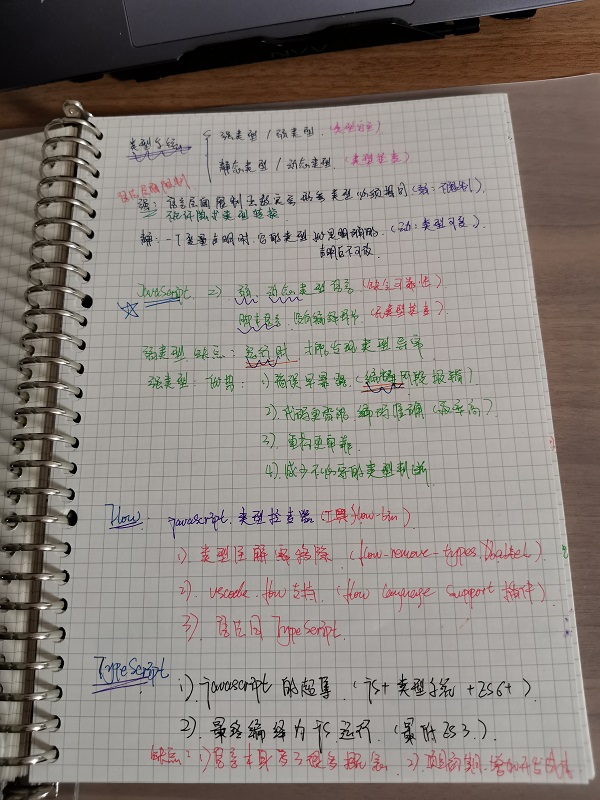 类型系统 { 强类型 / 弱类型 (类型安全)
静态类型 / 动态类型 (类型检查)
语言层面限制
强: 语言层面限制函数实参形参类型必须相同 (弱: 不限制)
不允许隐式类型转换
静: 一个变量声明时, 它的类型就是明确的, (动: 类型可变)
声明后不可改
JavaScript => 弱, 动态类型语言 (缺失可靠性)
脚本语言, 没有编译环节 (无类型检查)
弱类型 缺点: 运行时 才能发现类型异常
强类型: 优势: 1) 错误早暴露 (编译阶段报错)
2) 代码更智能, 编码准确
3) 重构更牢靠
4) 减少不必要的类型判断
Flow javascript 类型检查器 (工具 flow-bin)
1) 类型注解需移除 (flow-remove-types、babel)
2) vscode flow支持 (flow language support 插件)
3) TypeScript
TypeScript 1) javascript 的超集 (js + 类型系统 + ES6+)
2) 最终编译为 JS 运行 (最低ES3)
缺点: 1) 语言本身多了很多概念 2) 项目初期, 增加开发成本